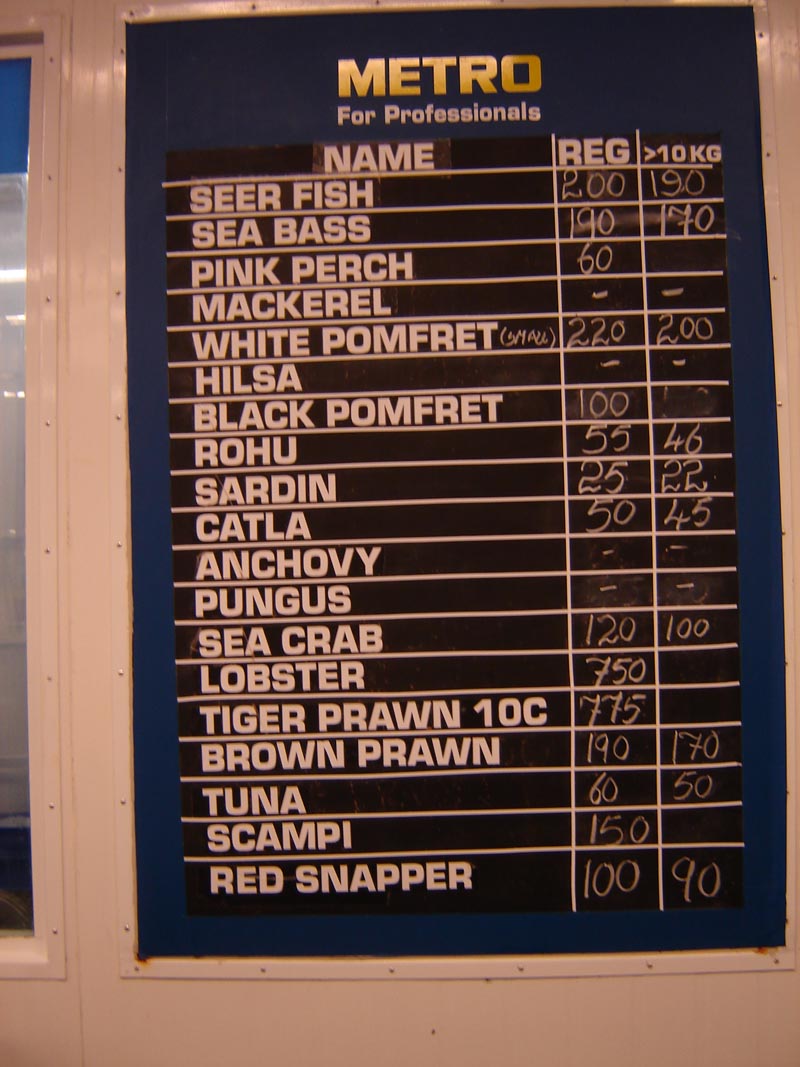 METRO
For Professionals
NAME REG >10KG
SEER FISH 200 190
SEA BASS 190 170
PINK PERCH 60
MACKEREL - -
WHITE POMFRET (SMALL) 220 200
HILSA - -
BLACK POMFRET 100
ROHU 55 46
SARDIN 25 22
CATLA 50 45
ANCHOVY - -
PUNGUS - -
SEA CRAB 120 100
LOBSTER 750
TIGER PRAWN 10C 775
BROWN PRAWN 190 170
TUNA 60 50
SCAMPI 150
RED SNAPPER 100 90